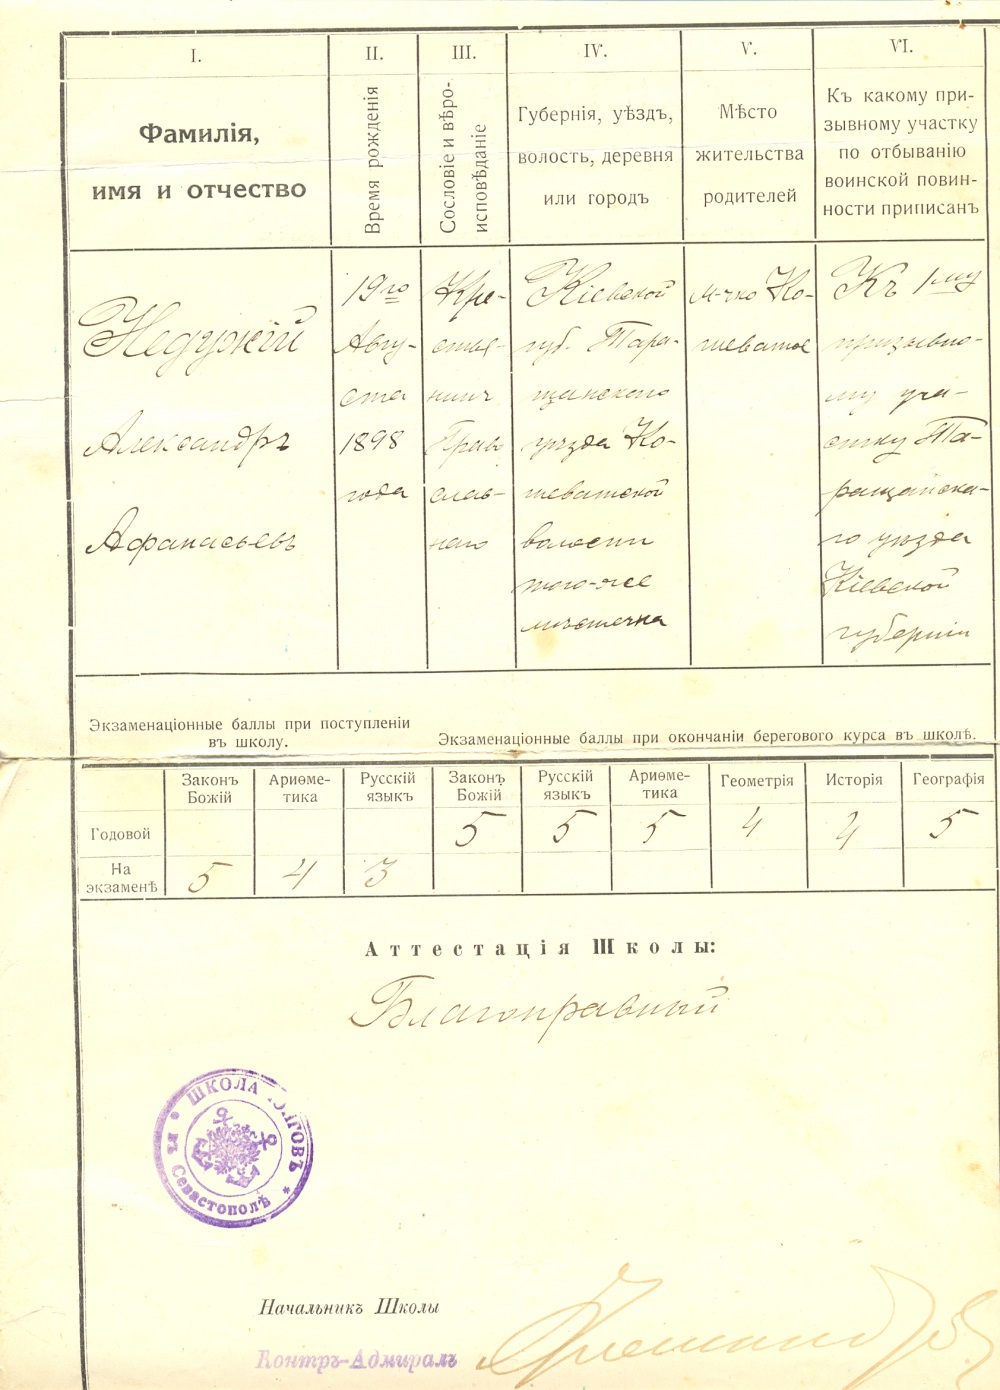 I.
II.
III.
IV.
V.
VI.
Фамилія,
имя и отчество
Время рожденія
Сословіе и вѣро-
исповѣданіе
Губернія, уѣздъ,
волость, деревня
или городъ
Мѣсто
жительства
родителей
Къ какому при-
зывному участку
по отбыванію
воинской повин-
ности приписанъ
Недужій
Александръ
Афанасьевъ
19го
Авгу-
ста
1898
года
Кре-
стья-
нинъ
Право
слав-
наго
Кіевской
губ. Тара-
щанского
уѣзда Ко-
шеватской
волости
того-же
мѣстечка
М-чко Ко-
шеватое
Къ 1му
призывно-
му уча-
стку Та-
ращанска-
го уѣзда
Кіевской
губерніи
Экзаменаціонные баллы при поступленіи
въ школу.
Экзаменаціонные баллы при окончаніи берегового курса въ школѣ.
Законъ Божій
Ариѳме-тика
Русскій языкъ
Законъ Божій
Русскій языкъ
Ариѳме-тика
Геометрія
Исторія
Географія
Годовой 5 5 5 4 4 5
На экзаменѣ 5 4 3
Аттестація Школы:
Благонравный
ШКОЛА ЮНГОВЪ
ВЪ Севастополѣ
Начальникъ Школы
Контръ-Адмиралъ